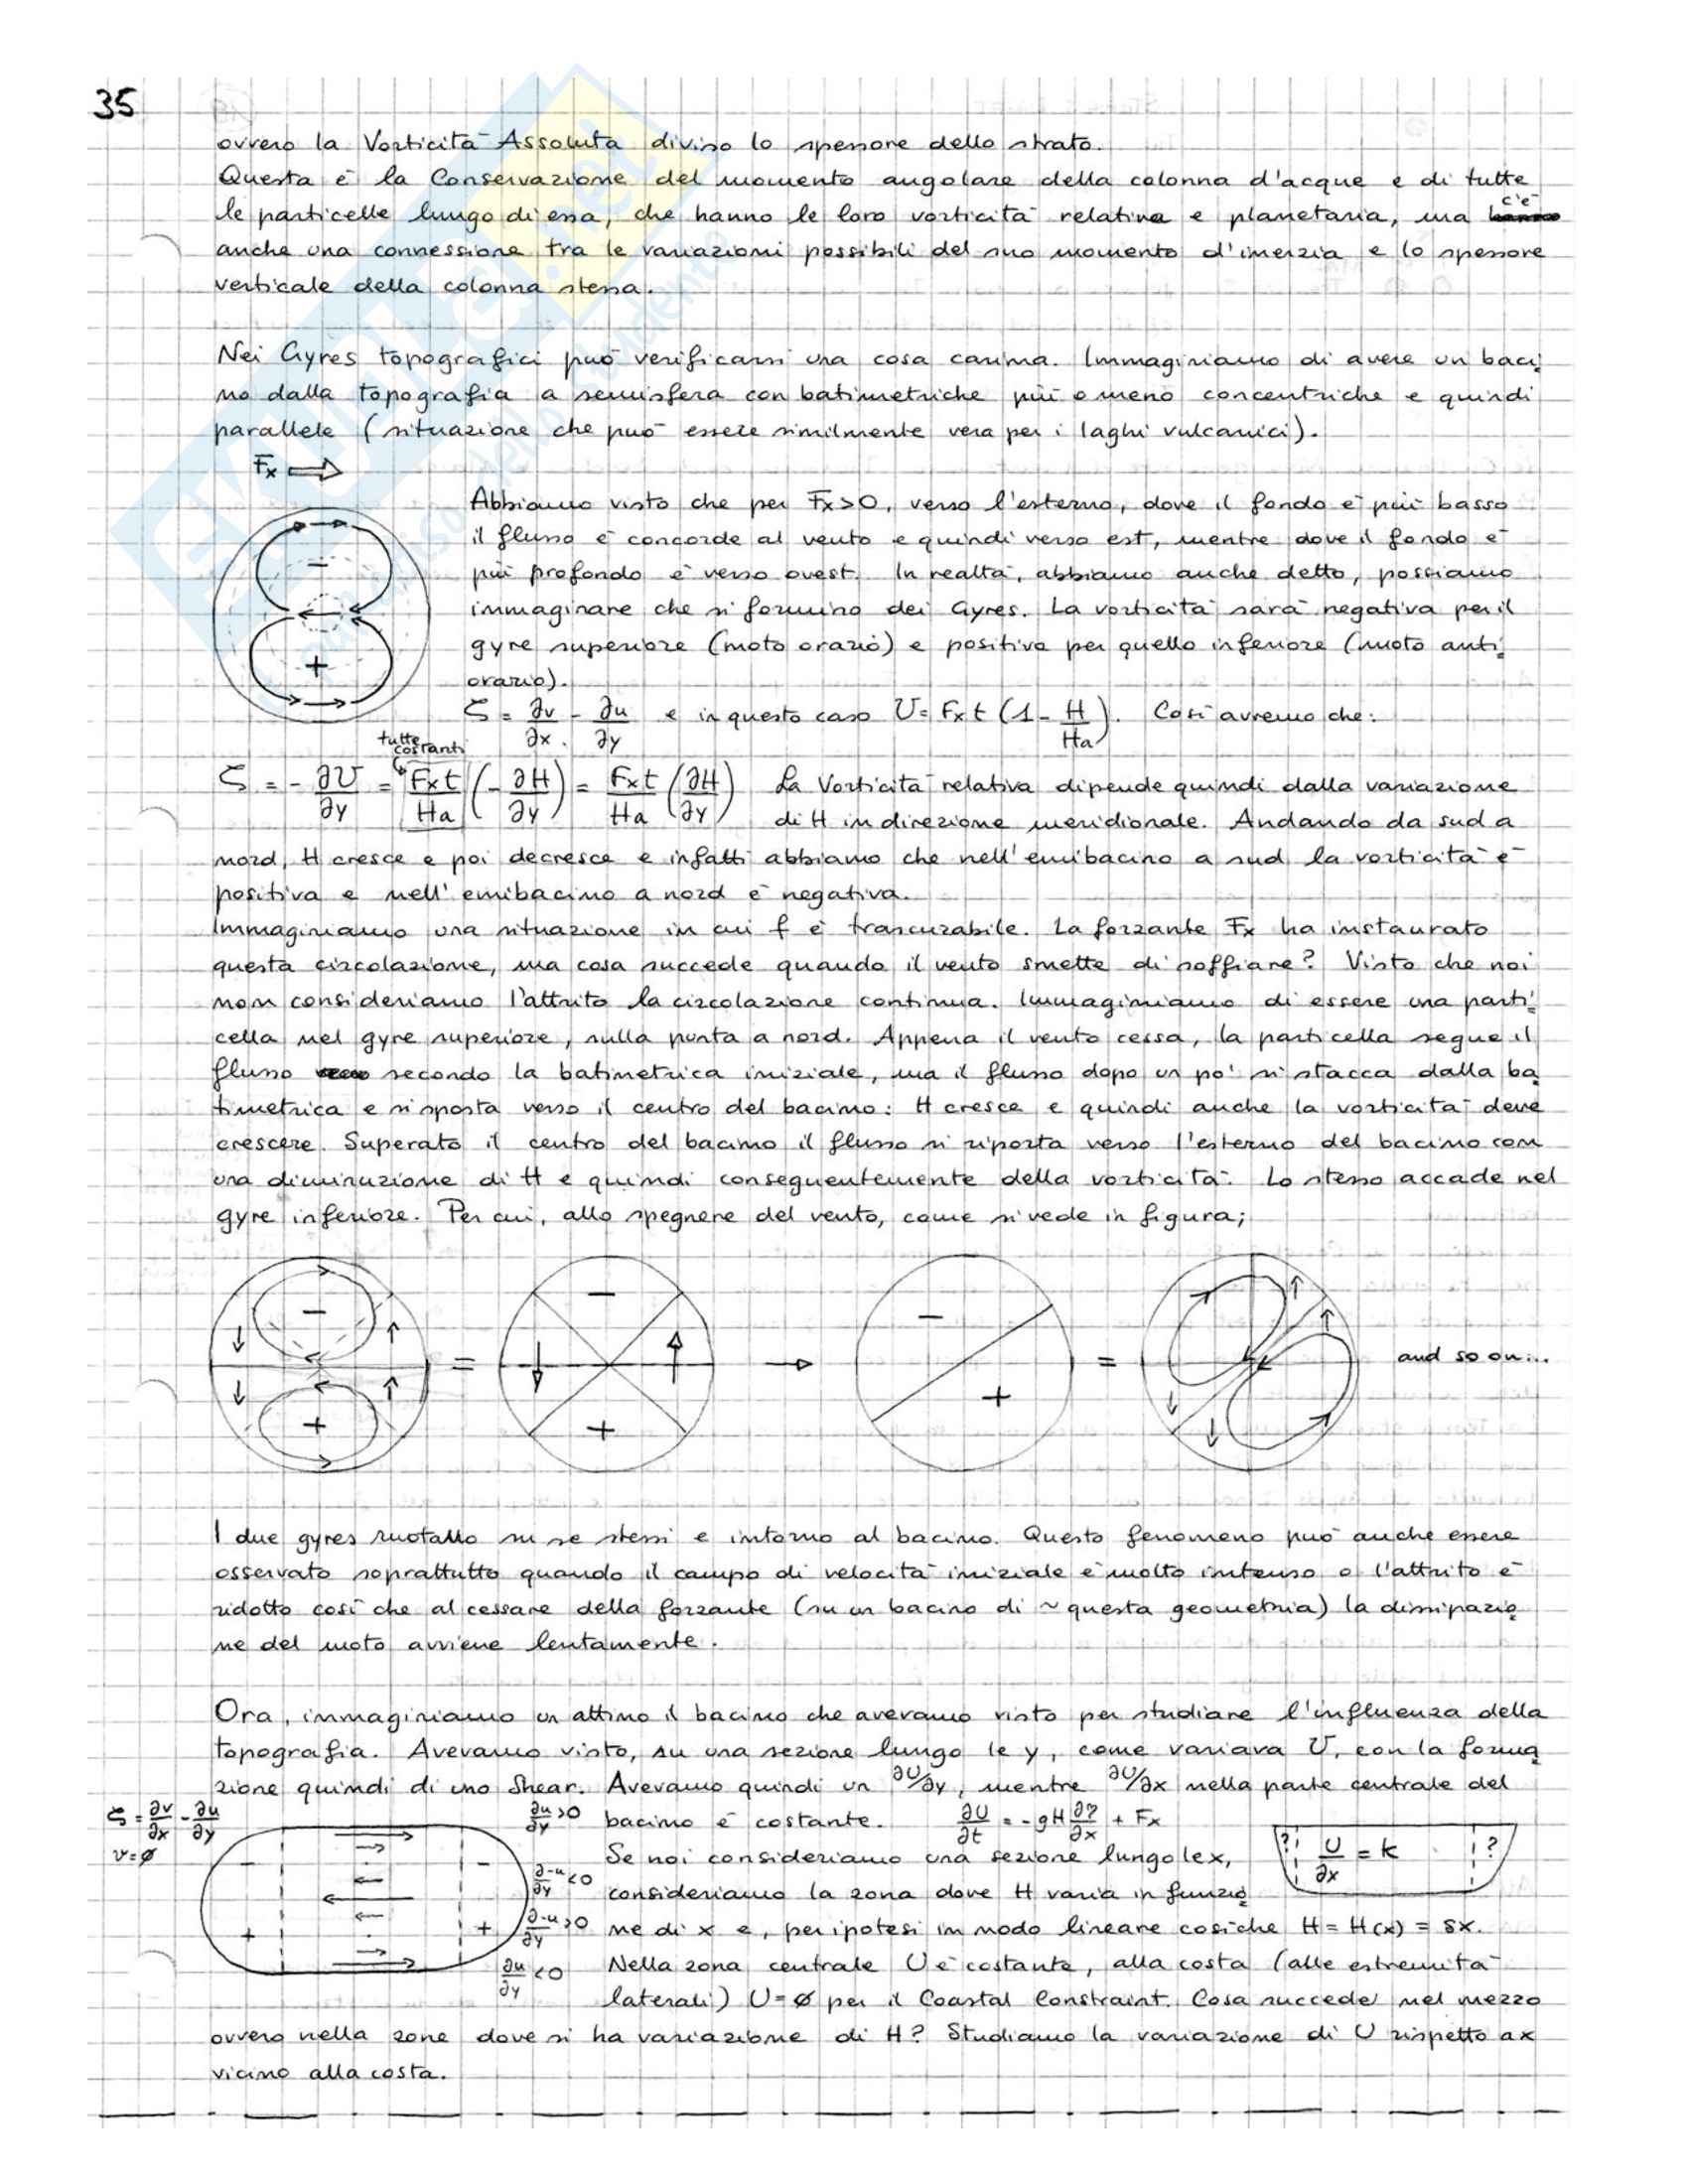 35
ovvero la Vorticità Assoluta diviso lo spessore dello strato.
Questa è la Conservazione del momento angolare della colonna d'acque e di tutte
le particelle lungo di essa, che hanno le loro vorticità relativa e planetaria, ma c'è
anche una connessione tra le variazioni possibili del suo momento d'inerzia e lo spessore
verticale della colonna stessa.
Nei Gyres topografici può verificarsi una cosa carina. Immaginiamo di avere un baci
no dalla topografia a semisfera con batimetriche più o meno concentriche e quindi
parallele (situazione che può essere similmente vera per i laghi vulcanici).
Fx ⇒
Abbiamo visto che per Fx>0, verso l'esterno, dove il fondo è più basso
il flusso è concorde al vento e quindi verso est, mentre dove il fondo è
più profondo è verso ovest. In realtà, abbiamo anche detto, possiamo
immaginare che si formino dei Gyres. La vorticità sarà negativa per il
gyre superiore (moto orario) e positiva per quello inferiore (moto anti
orario).
−
+
ζ = ∂v/∂x - ∂u/∂y e in questo caso U = Fx t (1 - H/Ha). Così avremo che:
tutte costanti
ζ = - ∂U/∂y = Fx t/Ha (- ∂H/∂y) = Fx t/Ha (∂H/∂y) La Vorticità relativa dipende quindi dalla variazione
di H in direzione meridionale. Andando da sud a
nord, H cresce e poi decresce e infatti abbiamo che nell'emibacino a sud la vorticità è
positiva e nell'emibacino a nord è negativa.
Immaginiamo una situazione in cui f è trascurabile. La forzante Fx ha instaurato
questa circolazione, ma cosa succede quando il vento smette di soffiare? Visto che noi
non consideriamo l'attrito la circolazione continua. Immaginiamo di essere una parti
cella nel gyre superiore, sulla punta a nord. Appena il vento cessa, la particella segue il
flusso secondo la batimetrica iniziale, ma il flusso dopo un po' si stacca dalla ba
timetrica e si sposta verso il centro del bacino: H cresce e quindi anche la vorticità deve
crescere. Superato il centro del bacino il flusso si riporta verso l'esterno del bacino con
una diminuzione di H e quindi conseguentemente della vorticità. Lo stesso accade nel
gyre inferiore. Per cui, allo spegnere del vento, come si vede in figura;
− + = − + → − + = and so on...
I due gyres ruotano su se stessi e intorno al bacino. Questo fenomeno può anche essere
osservato soprattutto quando il campo di velocità iniziale è molto intenso o l'attrito è
ridotto così che al cessare della forzante (su un bacino di ~ questa geometria) la dissipazio
ne del moto avviene lentamente.
Ora, immaginiamo un attimo il bacino che avevamo visto per studiare l'influenza della
topografia. Avevamo visto, su una sezione lungo le y, come variava U, con la forma
zione quindi di uno Shear. Avevamo quindi un ∂U/∂y, mentre ∂U/∂x nella parte centrale del
ζ = ∂v/∂x - ∂u/∂y
v=ø
∂u/∂y >0
bacino è costante. ∂U/∂t = -gH ∂η/∂x + Fx
Se noi consideriamo una sezione lungo le x,
? U/∂x = k ?
− −
∂-u/∂y <0
consideriamo la zona dove H varia in funzio
+ +
∂-u/∂y >0
ne di x e, per ipotesi in modo lineare cosicche H = H(x) = sx.
∂u/∂y <0
Nella zona centrale U è costante, alla costa (alle estremità
laterali) U=ø per il Coastal Constraint. Cosa succede nel mezzo
ovvero nella zone dove si ha variazione di H? Studiamo la variazione di U rispetto a x
vicino alla costa.